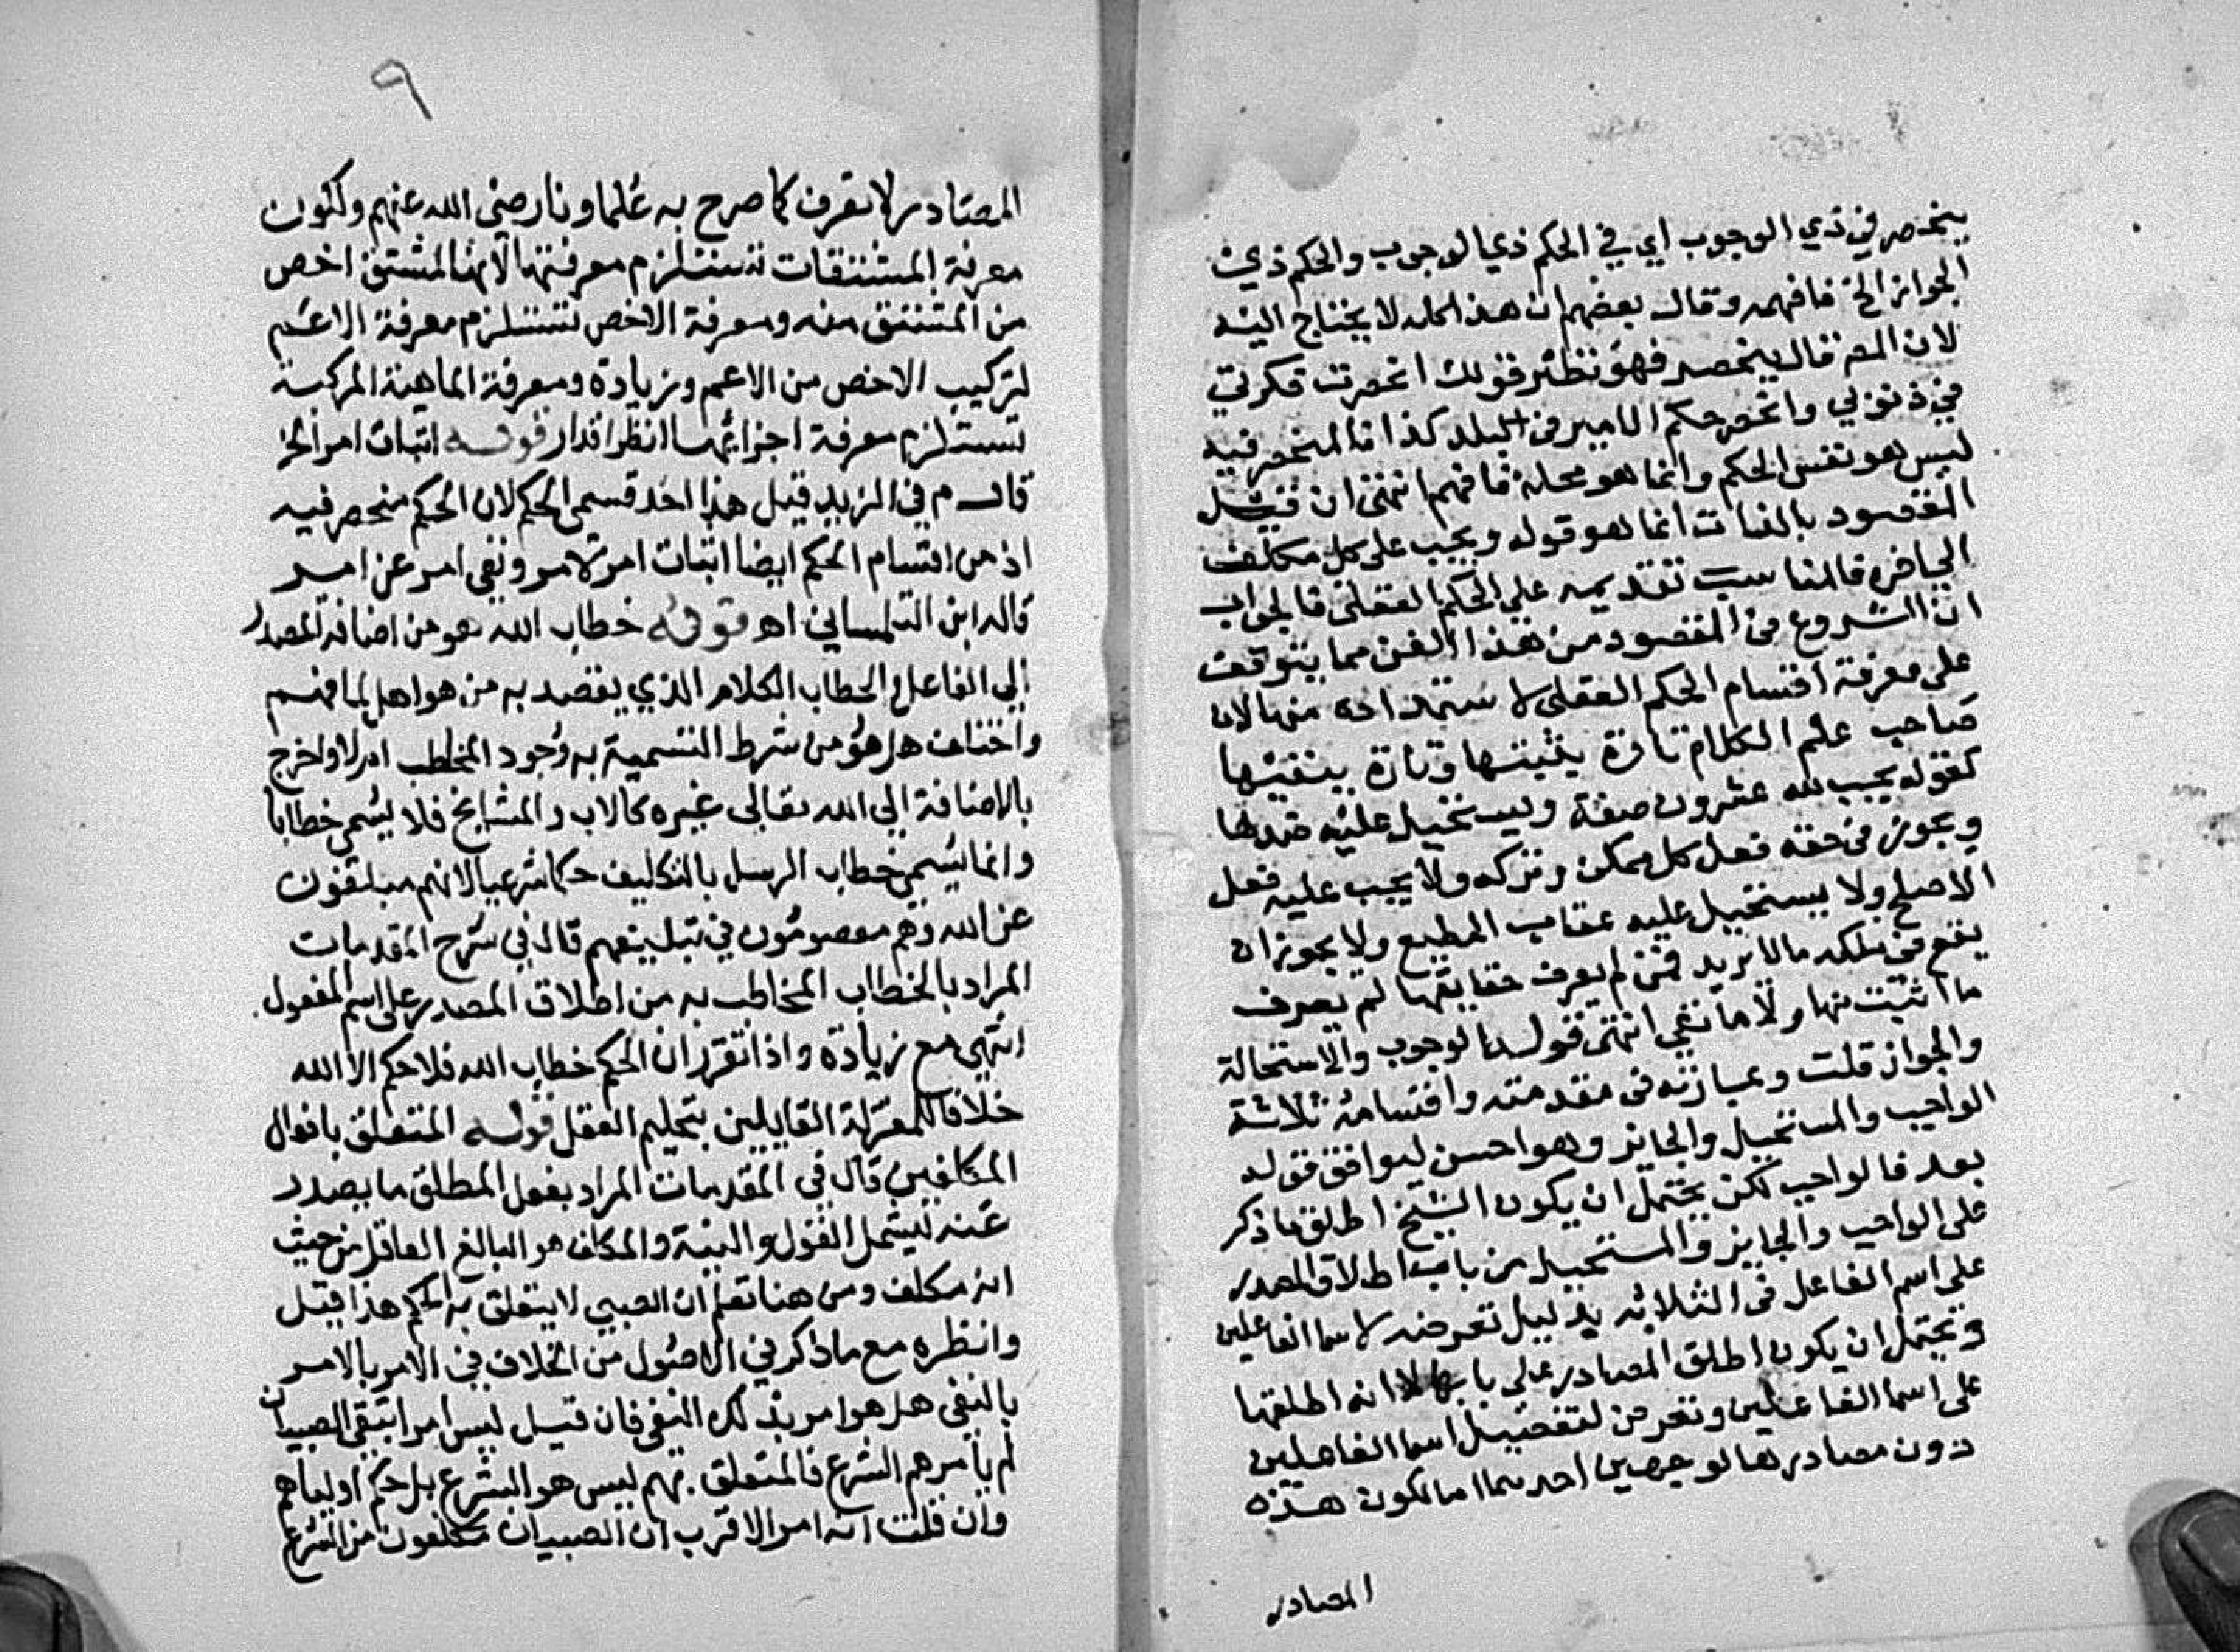 ينحصر في ذي الوجوب اي في الحكم ذي الوجوب والحكم ذي
الجواز الخ فافهمه وقال بعضهم ان هذا كله لا يحتاج اليه
لان المص قال ينحصر فهو نظير قولك انحصرت فكرتي
في ذنوبي وانحصر حكم الامير في البلد كذا فالمنحصر فيه
ليس هو نفس الحكم وانما هو محله فافهم انتهى ان قيل
المقصود بالذات انما هو قوله ويجب على كل مكلف
الى اخره فالمناسب تقديمه على الحكم العقلي فالجواب
ان الشروع في المقصود من هذا الفن مما يتوقف
على معرفة اقسام الحكم العقلي لاستمداده منها لان
صاحب علم الكلام تارة يثبتها وتارة ينفيها
كقوله يجب لله عشرون صفة ويستحيل عليه ضدها
ويجوز في حقه فعل كل ممكن وتركه ولا يجب عليه فعل
الاصلح ولا يستحيل عليه عقاب المطيع ولا يجوز ان
يقع في ملكه ما لا يريد فمن لم يعرف حقايقها لم يعرف
ما اثبت منها ولا ما نفي انتهى قوله الوجوب والاستحالة
والجواز قلت وعبارته في مقدمته واقسامه ثلاثة
الواجب والمستحيل والجائز وهو احسن ليوافق قوله
بعد فالواجب لكن يحتمل ان يكون الشيخ اطلق ما ذكر
على الواجب والجايز والمستحيل من باب اطلاق المصدر
على اسم الفاعل في الثلاثة بدليل تعرضه لاسما الفاعلين
ويحتمل ان يكون اطلق المصادر على بابها لا انه اطلقها
على اسما الفاعلين وتعرض لتفصيل اسما الفاعلين
دون مصادرها لوجهين احدهما اما لكون هذه
المصادر
٩
المصادر لا تعرف كما صرح به علماونا رضي الله عنهم ولكون
معرفة المشتقات تستلزم معرفتها لان المشتق اخص
من المشتق منه ومعرفة الاخص تستلزم معرفة الاعم
لتركيب الاخص من الاعم وزيادة ومعرفة الماهية المركبة
تستلزم معرفة اجزائها انظر اقدار قوله اثبات امر الخ
قال م في المزيد قيل هذا احد قسمي الحكم لان الحكم منحصر فيه
اذ من اقسام الحكم ايضا اثبات امر لامر ونفي امر عن امر
قاله ابن التلمساني اه قوله خطاب الله هو من اضافة المصدر
الي الفاعل والخطاب الكلام الذي يقصد به من هو اهل لما فهم
واختلف هل هو من شرط التسمية به وجود المخاطب ام لا واخرج
بالاضافة الي الله تعالى غيره كالاب والمشايخ فلا يسمى خطابا
وانما يسمى خطاب الرسل بالتكليف حكما شرعيا لانهم مبلغون
عن الله وهم معصومون في تبليغهم قال في شرح المقدمات
المراد بالخطاب المخاطب به من اطلاق المصدر على اسم المفعول
انتهى مع زيادة واذا تقرر ان الحكم خطاب الله فلا حكم الا الله
خلافا للمعتزلة القايلين بتحكيم العقل قوله المتعلق بافعال
المكلفين قال في المقدمات المراد بفعل المطلق ما يصدر
عنه ليشمل القول والنية والمكلف هو البالغ العاقل من حيث
انه مكلف ومن هنا تعلم ان الصبي لا يتعلق به الحكم هذا قيل
وانظره مع ما ذكر في الاصول من الخلاف في الامر بالامر
بالنفي هل هو امر بذلك النفي فان قيل ليس امرا بقى الصبيان
لم يأمرهم الشرع فالمتعلق بهم ليس هو الشرع بل حكم اوليائهم
وان قلت انه امر الاقرب ان الصبيان مكلفون من الشرع